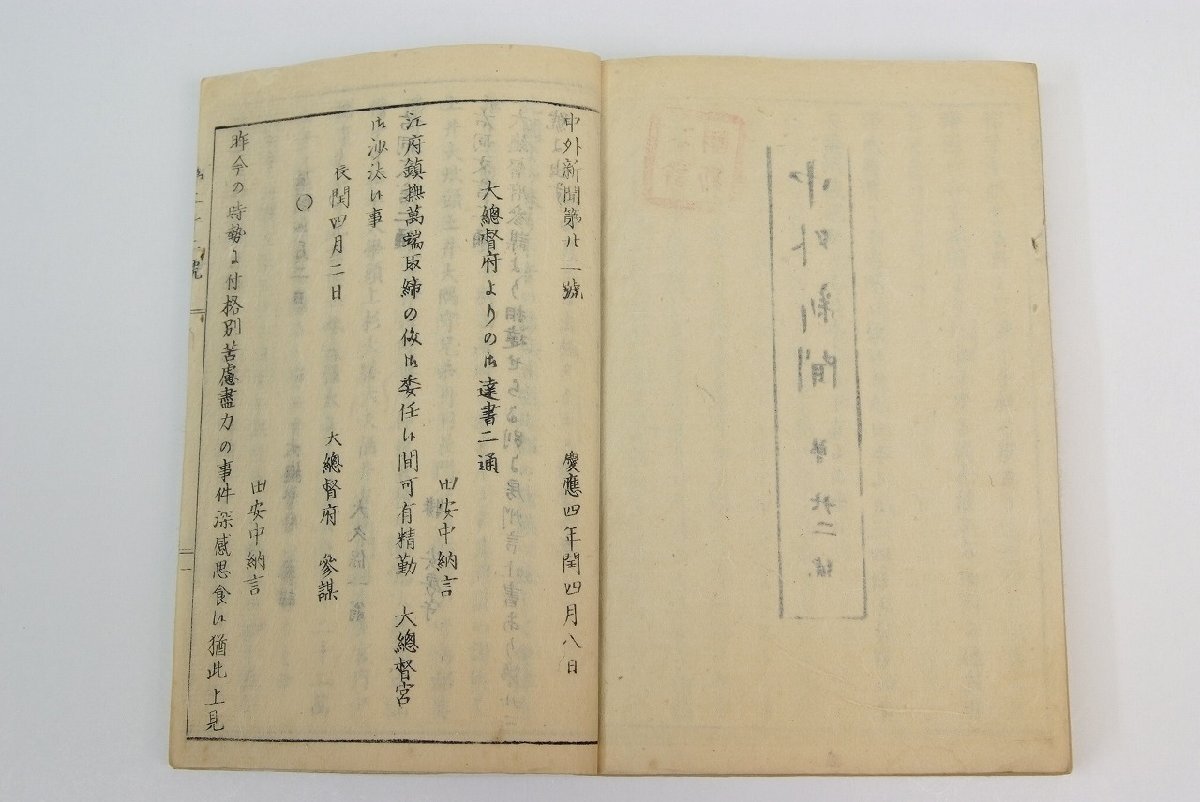 中外新聞第廿一號　慶應四年閏四月八日
大總督府よりの御達書二通
田安中納言
江府鎮撫萬端取締の儀御委任候間可有精勤　大總督宮
御沙汰候事
辰閏四月二日
大總督府　參謀
○
田安中納言
昨今の時勢に付格別苦慮盡力の事件深感思食候猶此上見